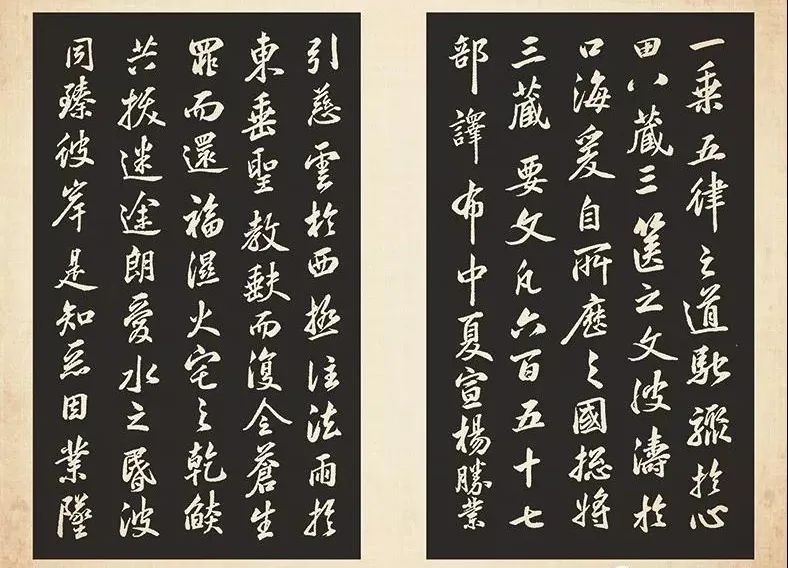 一乘五律之道馳驟於心
田八藏三篋之文波濤於
口海爰自所歷之國総將
三藏要文凡六百五十七
部譯布中夏宣楊勝業
引慈雲於西極注法雨於
東垂聖教缺而復全蒼生
罪而還福濕火宅之乾燄
共拔迷途朗愛水之昬波
同臻彼岸是知惡因業墜